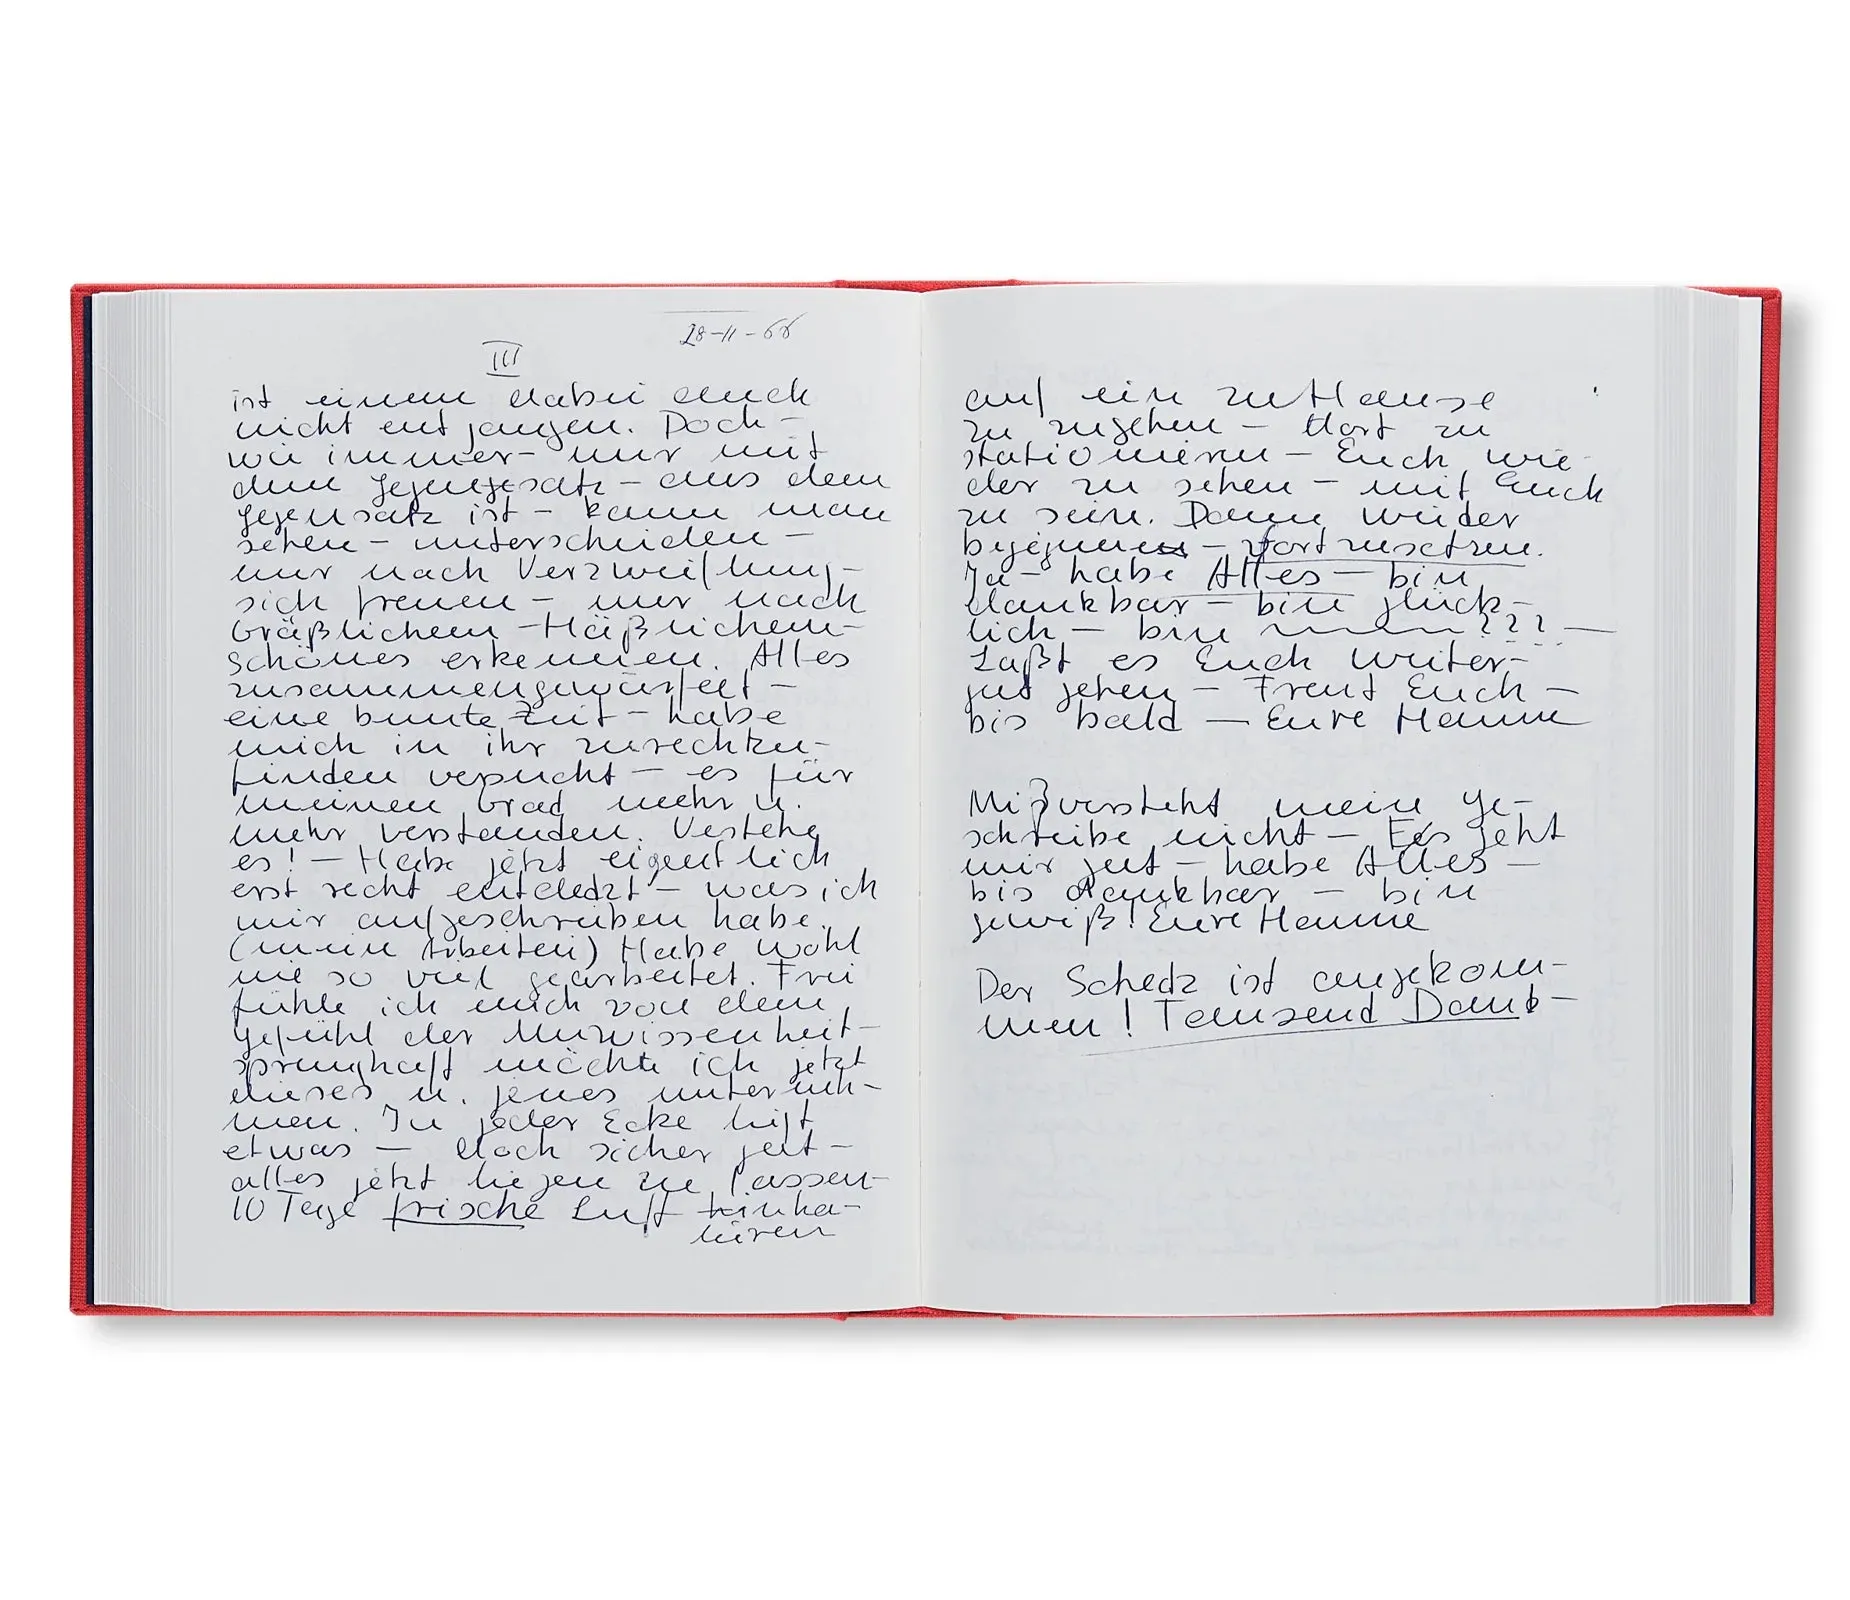 28-11-66
III
ist einem dabei auch
nicht entgangen. Doch –
wie immer – nur mit
dem Gegengesatz – aus dem
Gegensatz ist – kann man
sehen – unterscheiden –
nur nach Verzweiflung –
sich freuen – nur nach
Gräßlichem – Häßlichem –
Schönes erkennen. Alles
zusammengewürfelt –
eine bunte Zeit – habe
mich in ihr zurechtzu-
finden versucht – es für
meinen Grad mehr u.
mehr verstanden. Verstehe
es! – Habe jetzt eigentlich
erst recht entdeckt – was ich
mir aufgeschrieben habe.
(mein Arbeiten) Habe wohl
nie so viel gearbeitet. Frei
fühle ich mich von dem
Gefühl der Unwissenheit –
sprunghaft möchte ich jetzt
dieses u. jenes unterneh-
men. In jeder Ecke liegt
etwas – doch sicher gut –
alles jetzt liegen zu lassen –
10 Tage frische Luft einha-
lieren
auf ein zu Hause
zu zugehen – dort zu
stationieren – Euch wie-
der zu sehen – mit Euch
zu sein. Dann wieder
beginnen – fortzusetzen.
Ja – habe Alles – bin
dankbar – bin glück-
lich – bin ??? –
Laßt es Euch weiter-
gut gehen – Freut Euch –
bis bald – Eure Hanne
Mißversteht mein Ge-
schreibe nicht – Es geht
mir gut – habe Alles –
bis dankbar – bin
gewiß! Eure Hanne
Der Scheck ist angekom-
men! Tausend Dank –